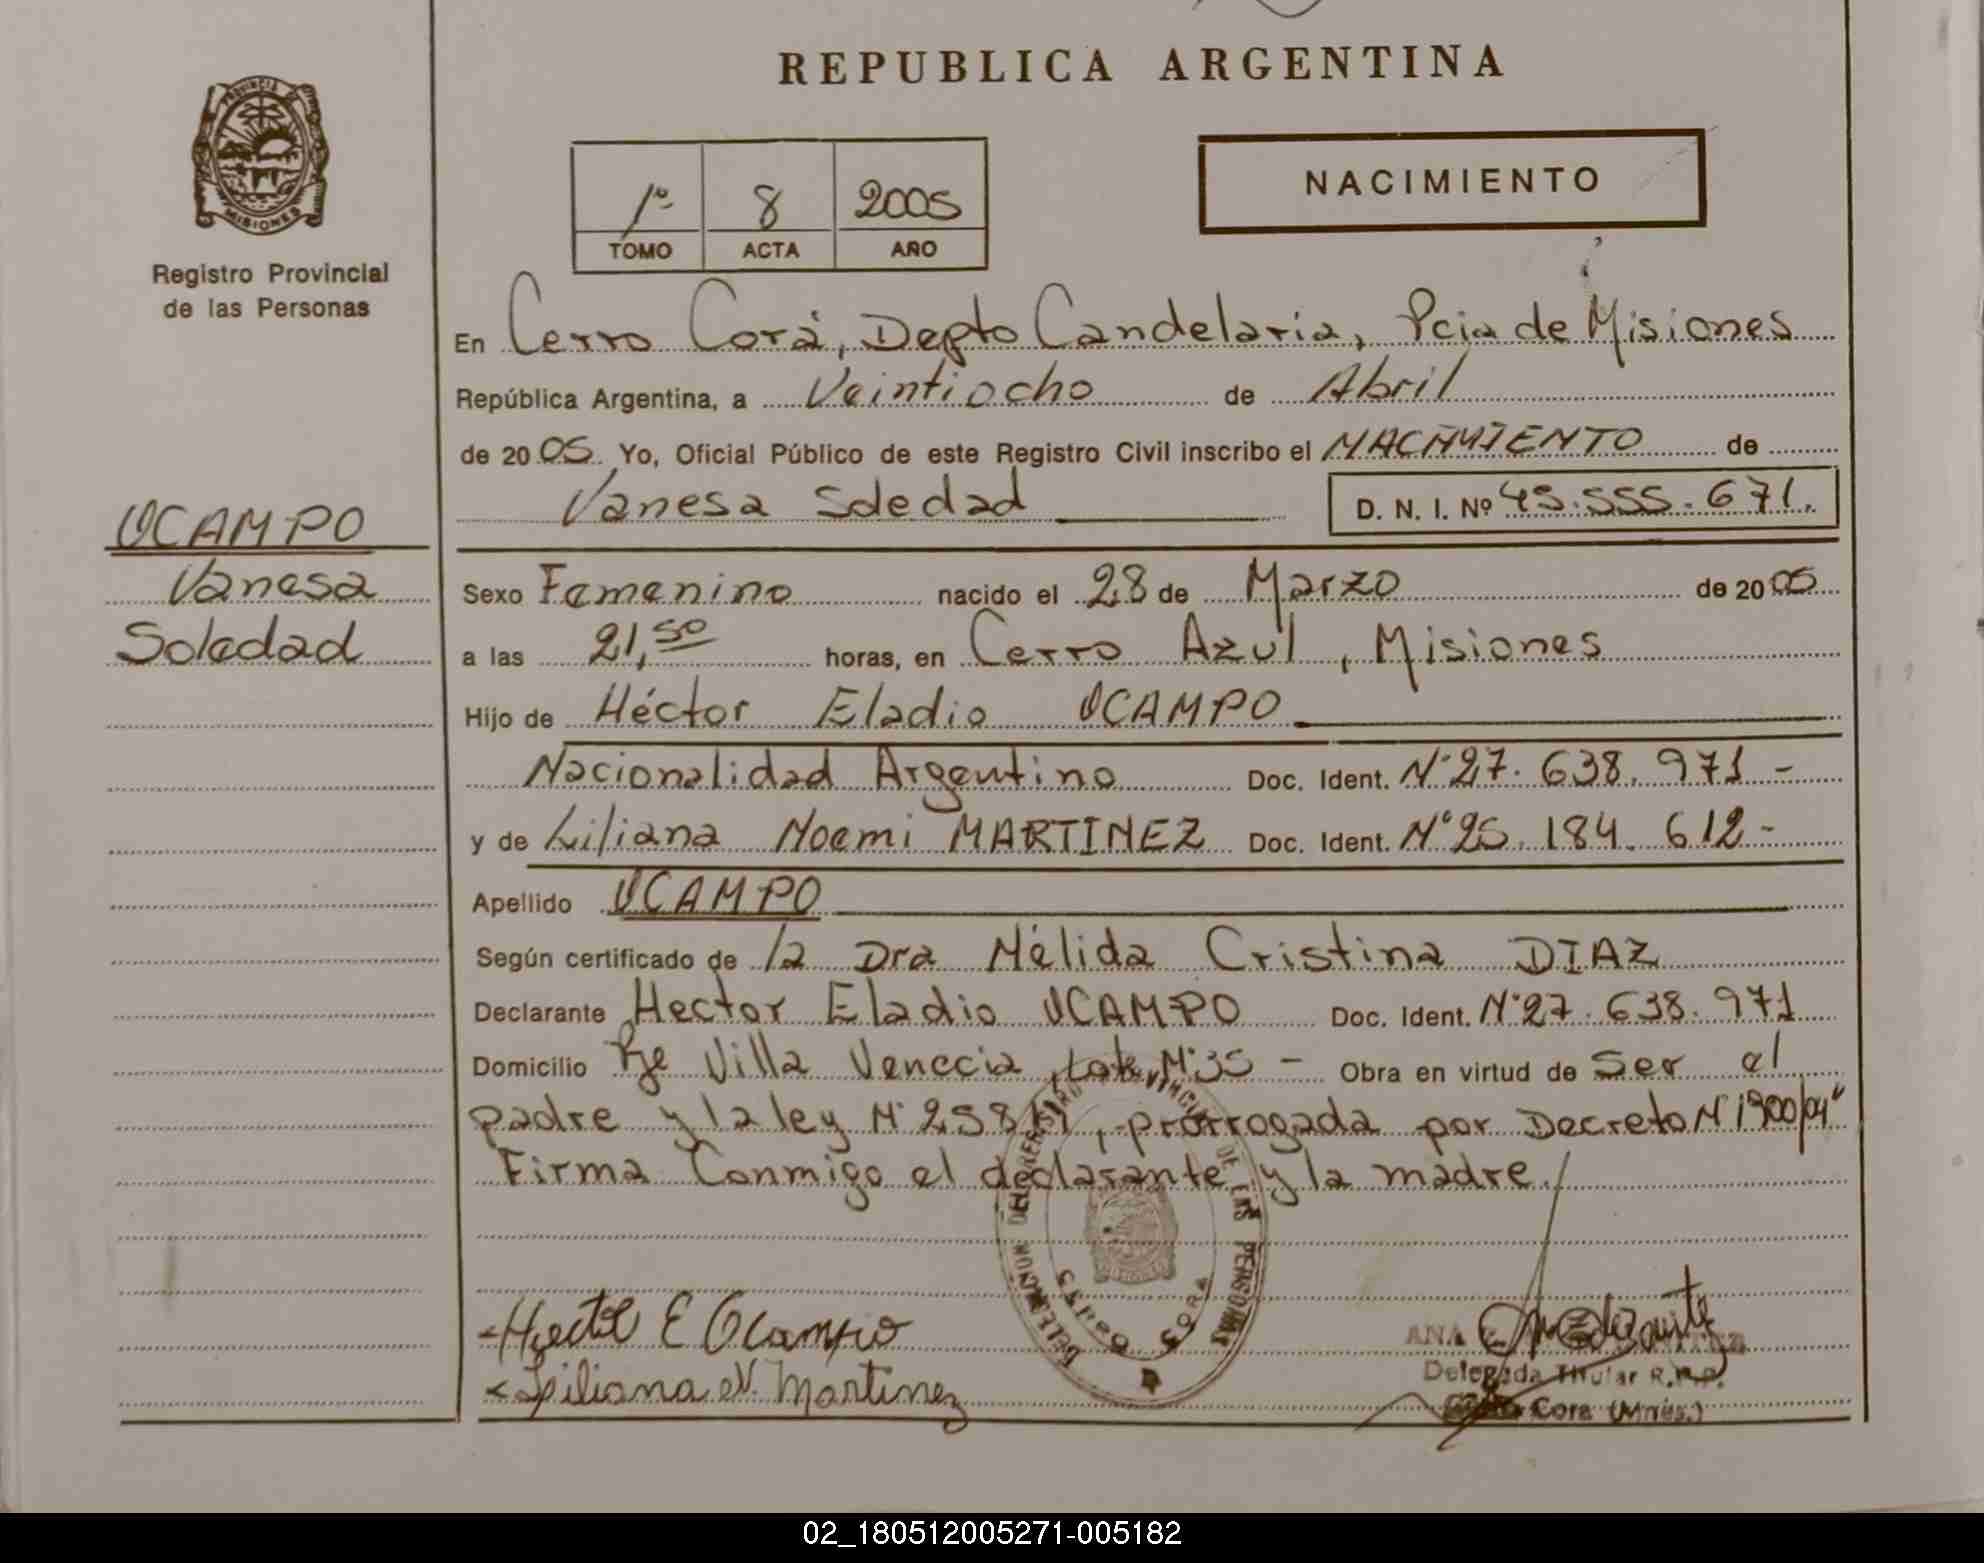 REPUBLICA ARGENTINA
PROVINCIA DE
MISIONES
Registro Provincial
de las Personas
NACIMIENTO
1º 8 2005
TOMO ACTA AÑO
En Cerro Corá, Depto Candelaria, Pcia de Misiones
República Argentina, a Veintiocho de Abril
de 2005 Yo, Oficial Público de este Registro Civil inscribo el NACIMIENTO de
Vanesa Soledad D. N. I. Nº 45.555.671.
OCAMPO
Vanesa
Soledad
Sexo Femenino nacido el 28 de Marzo de 2005
a las 21,50 horas, en Cerro Azul, Misiones
Hijo de Héctor Eladio OCAMPO
Nacionalidad Argentino Doc. Ident. Nº 27.638.971 -
y de Liliana Noemi MARTINEZ Doc. Ident. Nº 25.184.612 -
Apellido OCAMPO
Según certificado de la Dra Nélida Cristina DIAZ
Declarante Hector Eladio OCAMPO Doc. Ident. Nº 27.638.971
Domicilio Pje Villa Venecia, Lote Nº 35 - Obra en virtud de Ser el
padre y la ley Nº 25819, prorrogada por Decreto Nº 1900/04"
Firma Conmigo el declarante y la madre.
DELEGACION DEL REGISTRO PROVINCIAL DE LAS PERSONAS
CORA
Hector E Ocampo
Liliana N. Martinez
ANA
Delegada Titular R.P.P.
Cora (Mnes.)
02_180512005271-005182